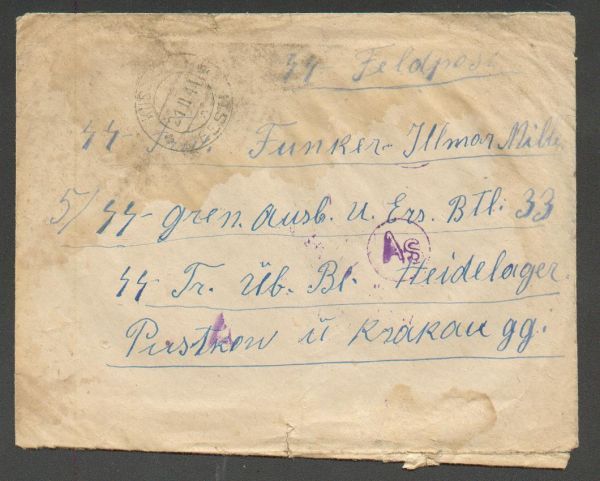 SS Feldpost
SS- Funker- Illmar
5/SS-gren. Ausb. u. Ers. Btl. 33
As
SS Tr. Üb. Pl. Heidelager.
Pustkow ü Krakau gg.